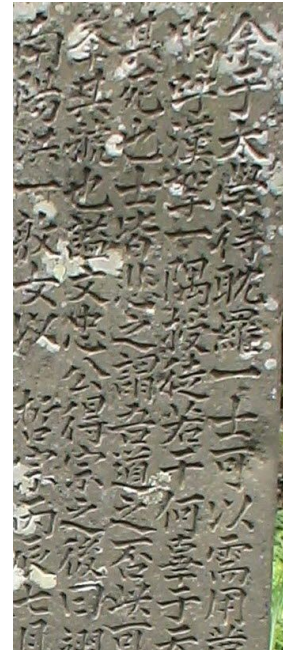 余于太學得耽羅一士可以需用當
嗚呼漢拏一隅授徒若干何辜于天
其死也士皆悲之謂吾道之否
奉其號也諡文忠公得宗之後曰
南陽洪一敬女以 哲宗丙辰七月